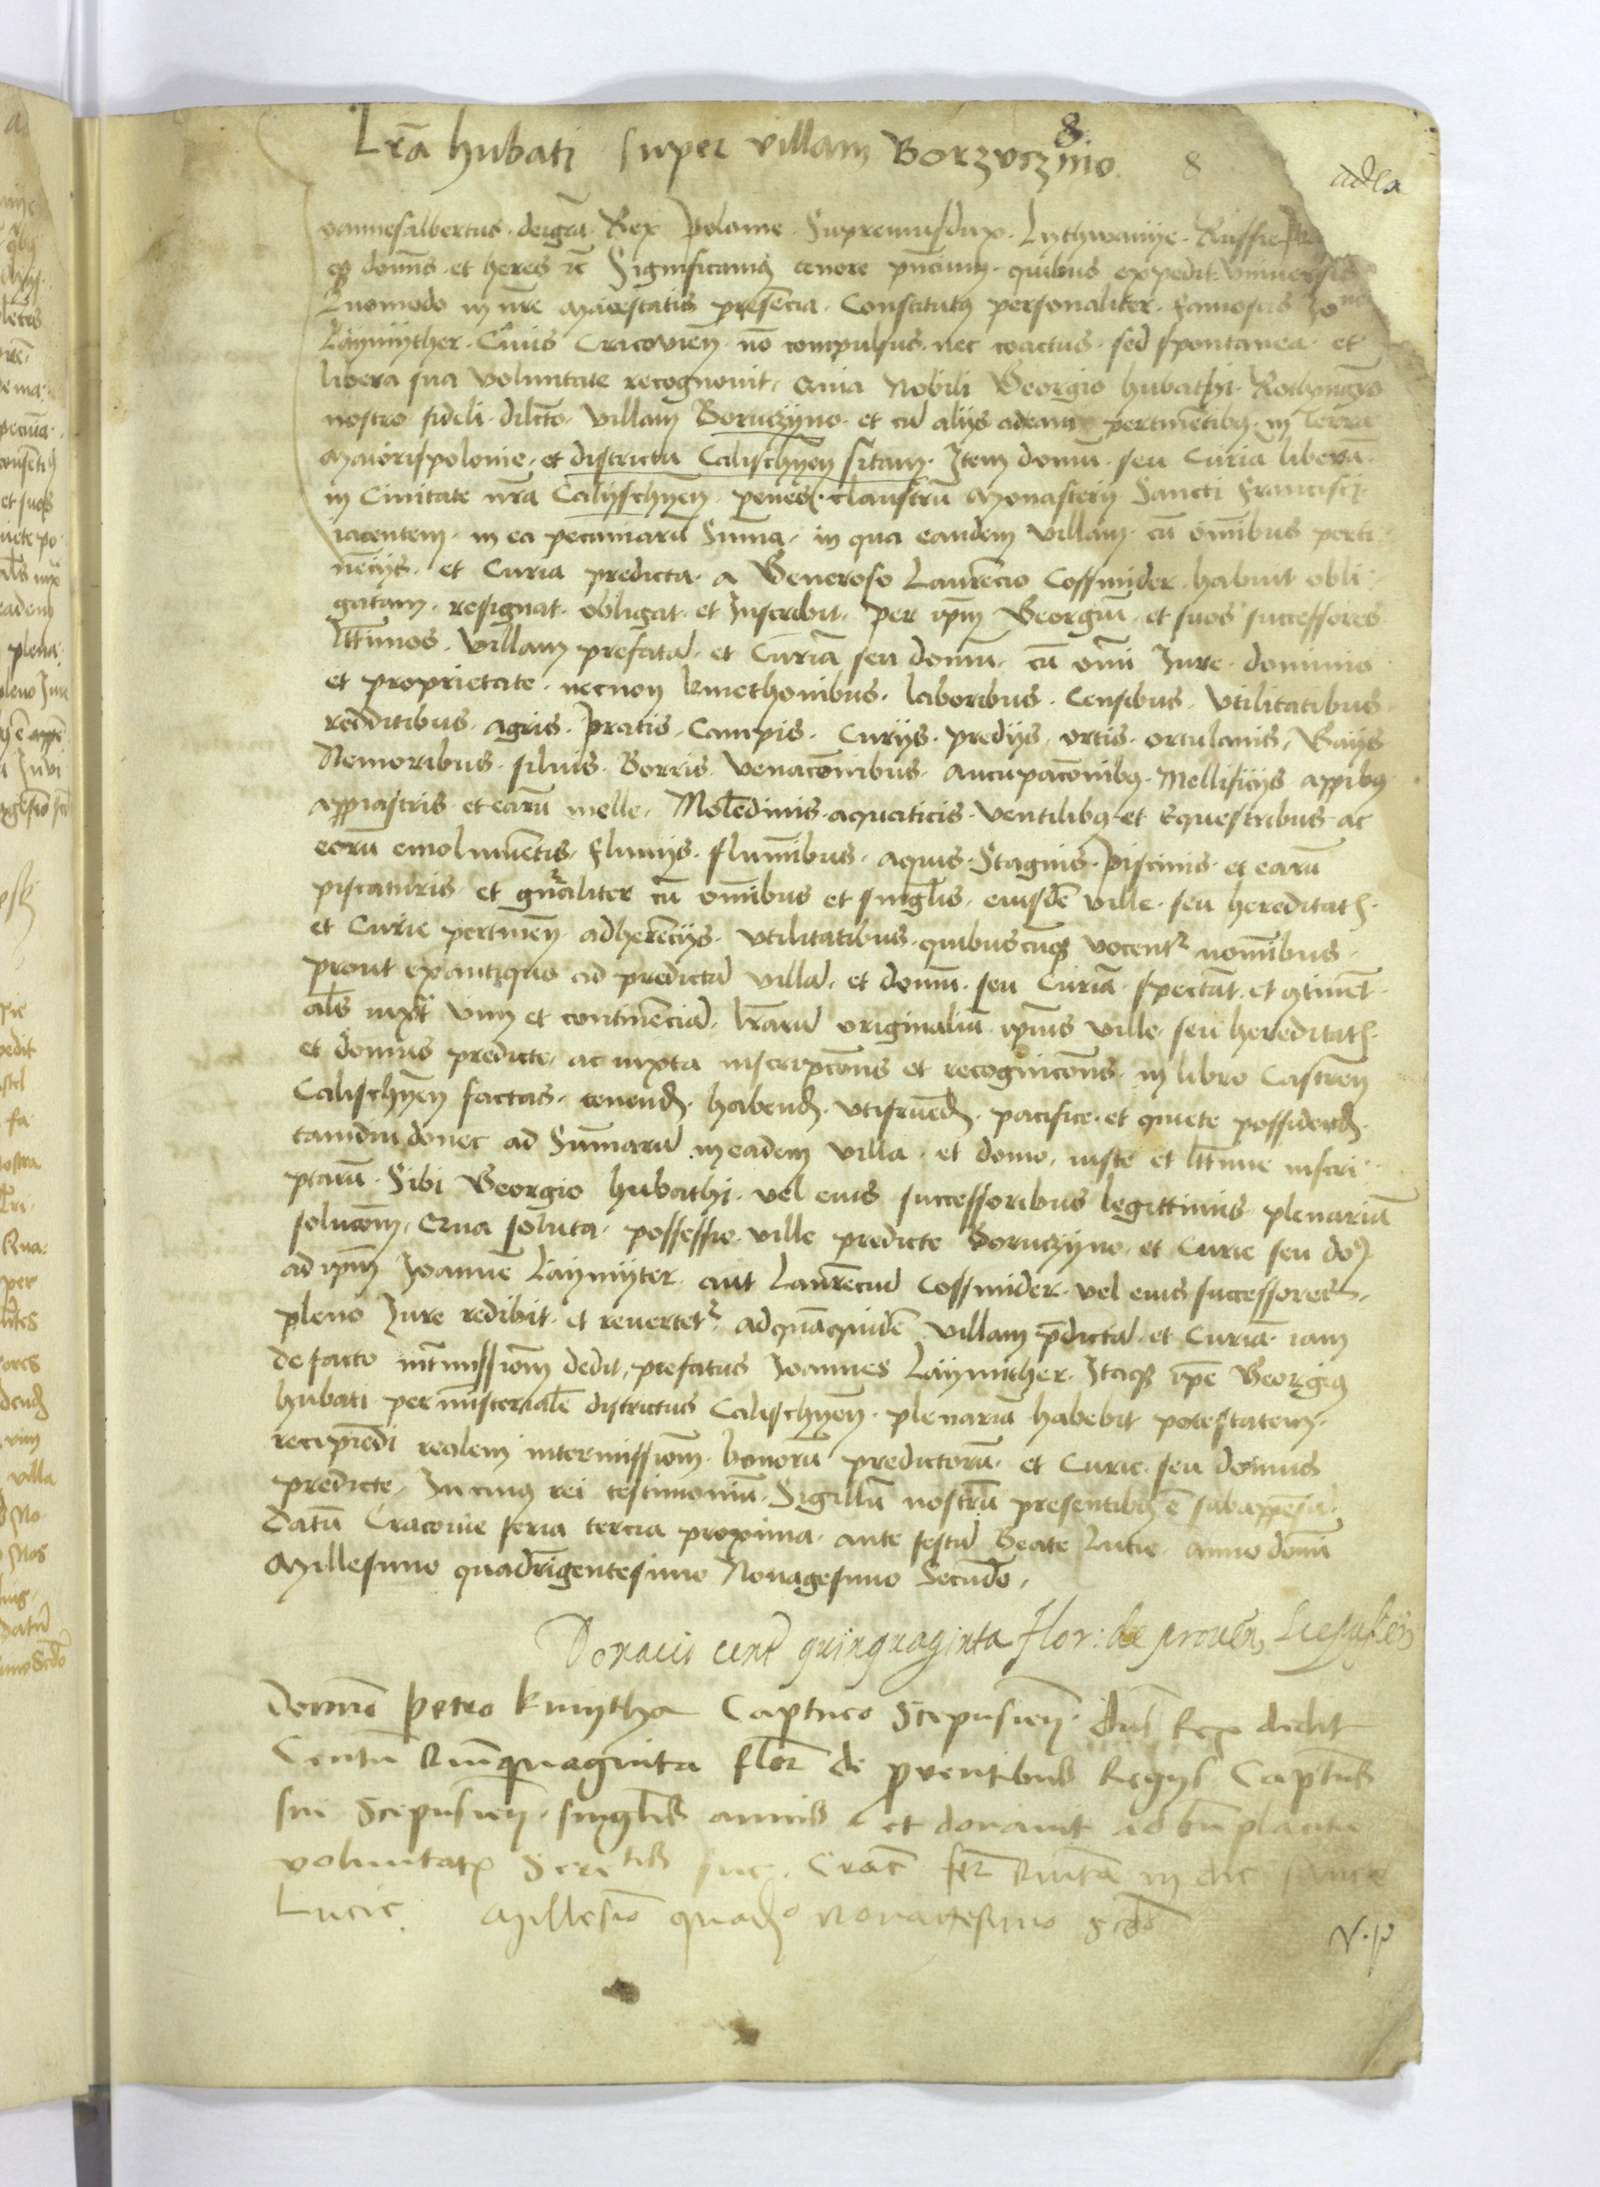 Lrã hubati super villam Borzvcznio
8 8
adca
oannesalbertus. deigrã. Rex polonie. Supremusdux. Lythwanije. Russie
qz domns. et heres rc Significamus tenore pñcium. quibus expedit vniuersis
Quomodo in nre maiestatis presẽcia. Constitutus personaliter. famosus
Laymijther. Ciuis Cracovień nõ compulsus. nec coactus. sed spontanea. et
libera sua voluntate recognouit. Quia Nobili Georgio hubathi.
nostro fideli. dilcto. villam Boruczyno. et cũ alijs adeam pertinẽtibus. in terra
maiorispolonie. et districtu Calischyeń sitam. Item domũ. seu Curiã liberã
in Ciuitate nrã Calijschyeń. penes. claustrũ monasterij Sancti Francisci
iacentem. in ea pecuniarũ Sũma. in qua eandem villam. cũ omĩbus perti
nẽcijs. et Curia predicta. a Generoso Laurẽcio Cossmider. habuit obli
gatam. resignat. obligat. et Inscribit. per ipm Georgiũ. et suos successores
lttimos. villam prefatã. et Curiã seu domũ. cũ omĩ Iure. dominio
et proprietate. necnon kmethonibus. laboribus. Censibus. vtilitatibus
redditibus. agris. pratis. Campis. Curijs. predijs. ortis. ortulanis. Gaijs
Nemoribus. siluis. Borris. venacõnibus. aucupacõnibus. Mellificijs appibus
appiastris. et earũ melle. Molẽdinis. aquaticis. ventilibus. et Equestribus. ac
eorũ emolumẽtis. fluuijs. flumĩbus. aquis. Stagnis. piscinis. et earũ
piscaturis. et gñraliter cũ omĩbus et singlis. eiusdẽ ville. seu hereditatis.
et Curie pertineń. adherẽcijs. vtilitatibus. quibuscũqz vocentur nomĩbus.
prout exantiquo ad predictã villã. et domũ. seu Curiã. spectãt. et qtinẽt.
als iuxt vim et continẽciã. lrarũ originaliũ. ipius ville. seu hereditatis.
et domus predicte. ac iuxta inscripcões et recognicões. in libro Castreń
Calischyeń factas. tenend. habend. vtifruẽd. pacifice. et quiete possidend.
tamdiu donec ad Sũmarũ in eadem villa. et domo. iuste et lttime inscri
ptarũ. Sibi Georgio hubathi. vel eius successoribus legittimis. plenariã
solucõm. Qua soluta. possessio ville predicte Boruczyno. et Curie seu do9
ad ipm Joannẽ Laymijter. aut Laurẽciũ Cossmider. vel eius successores.
pleno Iure redibit. et reuertetur. adquãquidẽ villam pdictã. et Curiã. iam
de facto intmissiõm dedit. prefatus Joannes Laymither. Itaqz ipe Georgius
hubati per ministerialẽ districtus Calischyeń. plenariã habebit potestatem.
recipiẽdi realem intermissiõm. bonorũ predictorũ. et Curie. seu domus
predicte. Incuius rei testimoniũ. Sigillũ nostrũ presentibus ẽ subappẽsũ.
Datũ Cracouie feria tercia proxima. ante festũ Beate Lucie. anno domi
Millesimo quadringentesimo Nonagesimo Secũdo.
Donacio cent quinquaginta flor: de prouen,
Domino Petro kmijtha Captneo Scepusień. dns Rex dedit
Centũ Quinquaginta flor de prouentibus Regijs Captus
sui Scepusień. singlis annis et donauit ad bñplacitũ
voluntatis Serĩtis sue. Crac fer Quita in die sancte
Lucie. Millesio quad° nonagesimo scdo
N. p